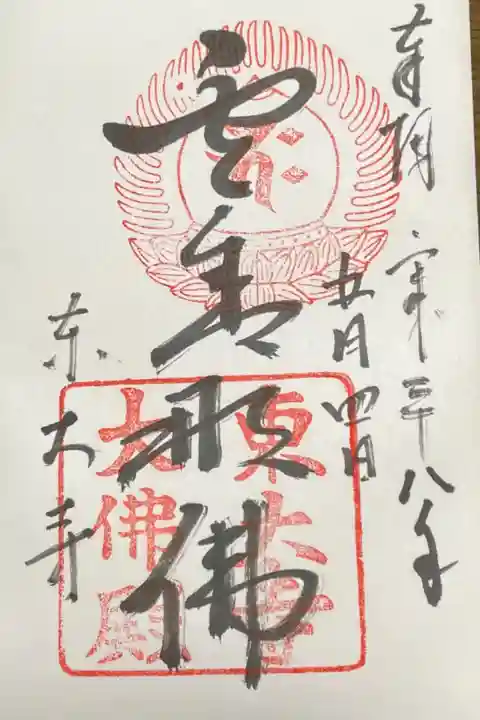 奉拝 平成二十八年
五月四日
盧舎那佛
東大寺
東大寺
大佛殿